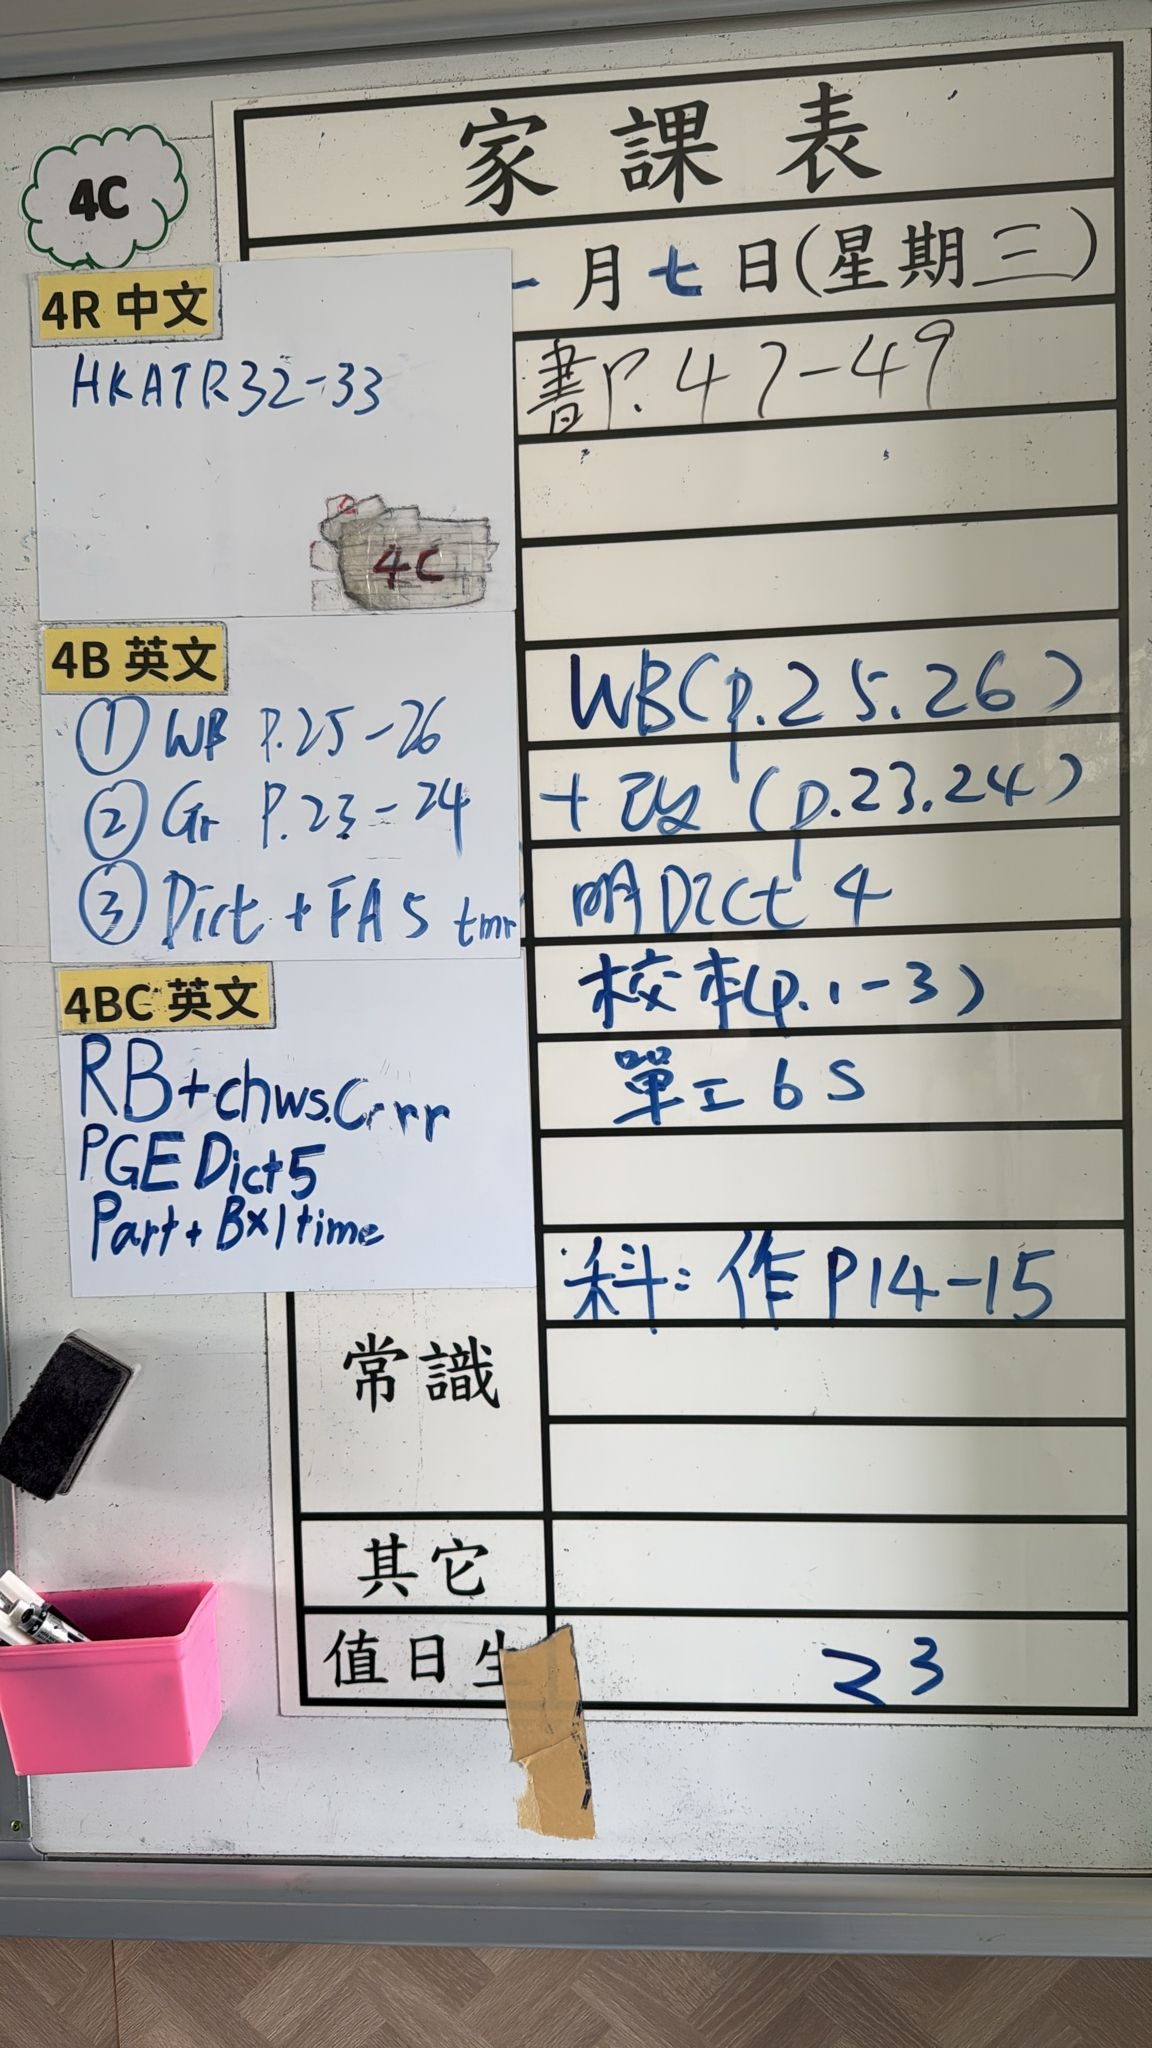 家課表
4C
月七日(星期三)
4R 中文
HKATR32-33
4C
書P.47-49
4B 英文
① WB P.25-26
② Gr P.23-24
③ Dict + FA5 tmr
WB(p.25.26)
+改(p.23.24)
明Dict 4
4BC 英文
RB+chws.Crrr
PGE Dict5
Part+Bx1time
校本(p.1-3)
單工 6S
科: 作P14-15
常識
其它
值日生
23